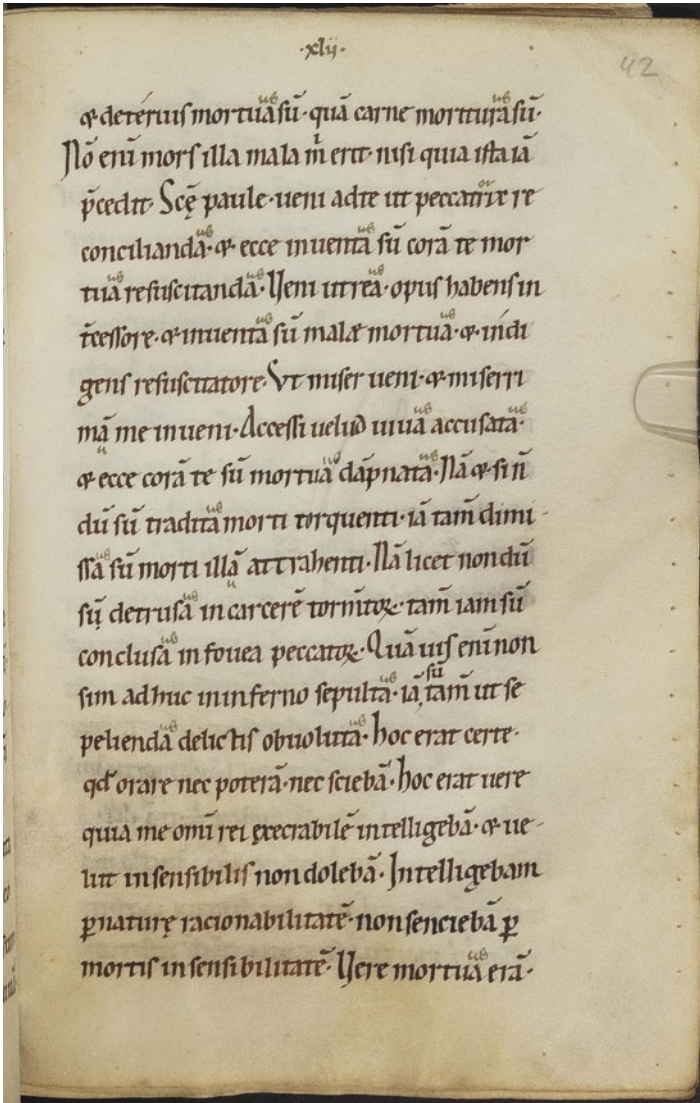 ·xlij·
42
& deterius mortuā sū· quā carne moritura sū·
Nō enī mors illa mala m̄ erit· nisi quia ista iā
p̄cedit· Scę paule· ueni ad te ut peccatrix re
conciliandā· & ecce inuentā sū corā te mor
tuā resuscitandā· Ueni ut reā· opus habens in
t̄cessore· & inuentā sū malæ mortuā· & indi
gens resuscitatore· Vt miser ueni· & miserri
mā me inueni· Accessi uelud uiuā accusatā·
& ecce corā te sū mortuā dāpnatā· Nā & si n̄
dū sū traditā morti torquenti· iā tam̄ dimi-
ssā sū morti illā attrahenti· Nā licet nondū
sū detrusā in carcerē torm̄toꝝ· tam̄ iam sū
conclusā in fouea peccatoꝝ· Quā uis enī non
sim adhuc in inferno sepultā· iā sū tam̄ ut se
peliendā delictis obuolutā· hoc erat certe·
qd̄ orare nec poterā· nec sciebā· hoc erat uere
quia me om̄i rei execrabilē intelligebā· & ue-
lut insensibilis non dolebā· Intelligebam
ꝑ naturę racionabilitatē· non senciebā ꝑ
mortis insensibilitatē· Uere mortuā erā·